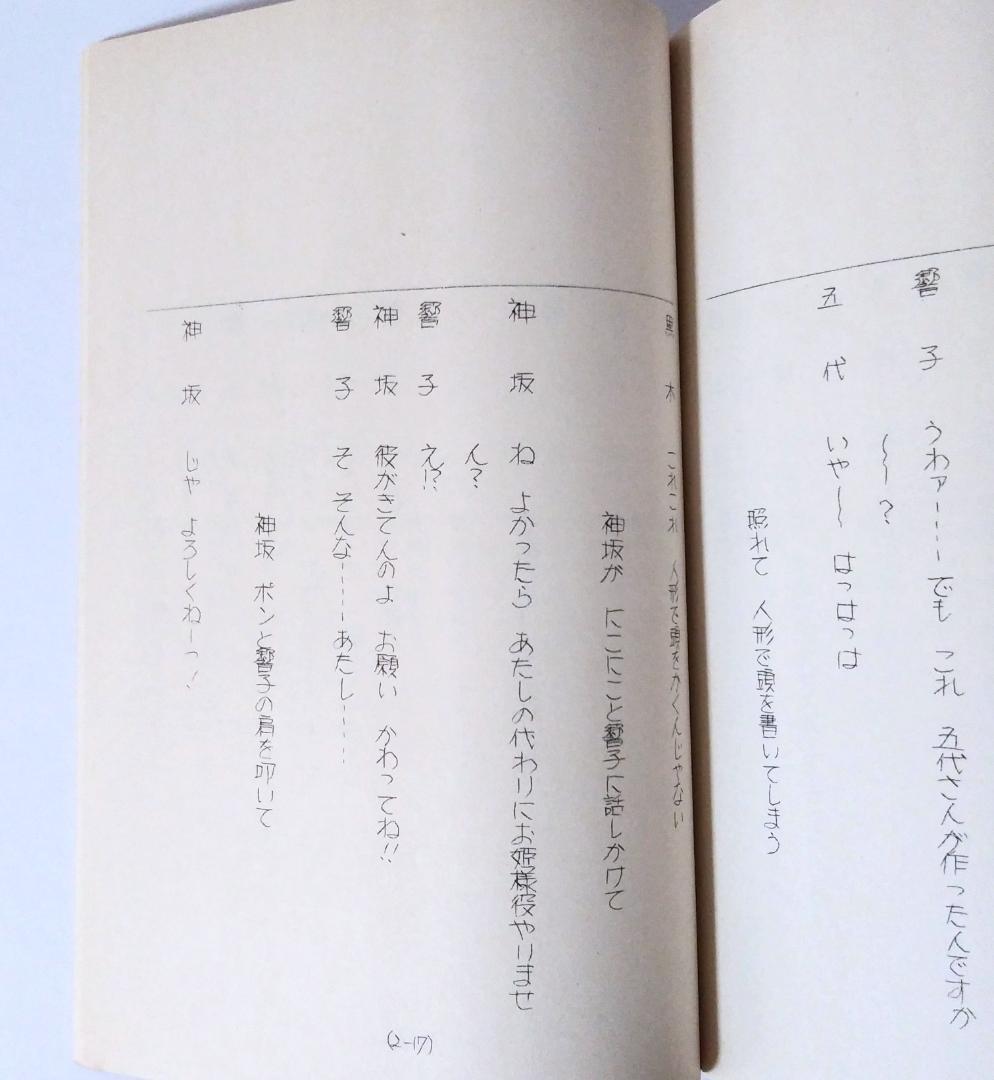 響子 うわァ----でも これ 五代さんが作ったんですか
〜〜?
五代 いや〜 はっはっは
照れて 人形で頭を書いてしまう
黒木 これこれ 人形で頭をかくんじゃない
神坂が にこにこと響子に話しかけて
神坂 ね よかったら あたしの代わりにお姫様役やりませ
ん?
響子 え!?
神坂 彼がきてんのよ お願い かわってね!!
響子 そ そんな----あたし----
神坂 ポンと響子の肩を叩いて
神坂 じゃ よろしくねーっ!
(2-17)